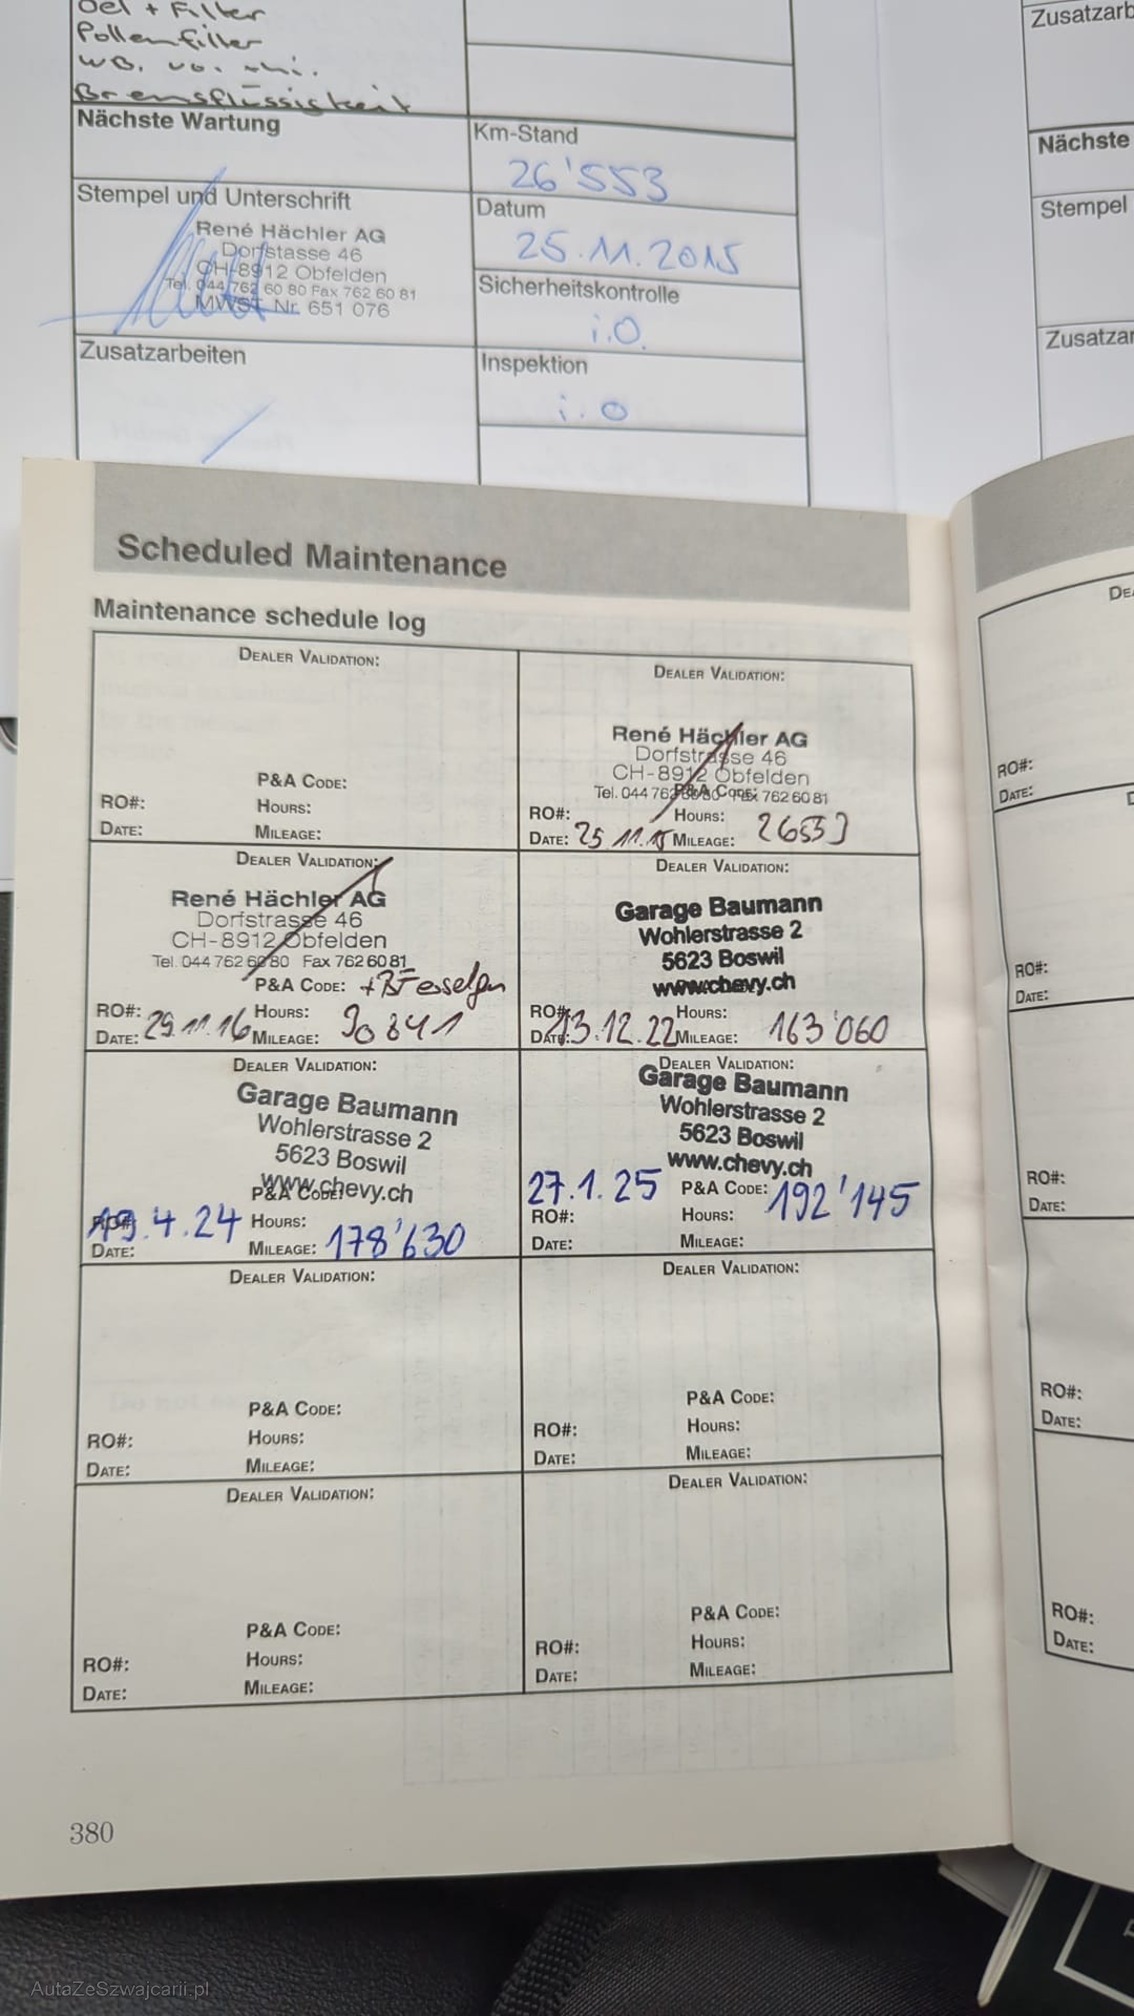 Oel + Filter
Pollenfilter
Bremsflüssigkeit
Nächste Wartung
Km-Stand
26'553
Stempel und Unterschrift
René Hächler AG
Dorfstasse 46
CH-8912 Obfelden
Tel. 044 762 60 80 Fax 762 60 81
MWST Nr. 651 076
Datum
25.11.2015
Sicherheitskontrolle
i.O.
Zusatzarbeiten
Inspektion
i.O
Zusatzarb
Nächste
Stempel
Zusatzar
Scheduled Maintenance
Maintenance schedule log
DEALER VALIDATION:
P&A CODE:
RO#:
HOURS:
DATE:
MILEAGE:
DEALER VALIDATION:
René Hächler AG
Dorfstrasse 46
CH-8912 Obfelden
Tel. 044 762 60 80 Fax 762 60 81
P&A CODE:
RO#:
HOURS:
DATE: 25.11.15 MILEAGE: 26553
DEALER VALIDATION:
René Hächler AG
Dorfstrasse 46
CH-8912 Obfelden
Tel. 044 762 60 80 Fax 762 60 81
P&A CODE:
RO#:
HOURS:
DATE: 29.11.16 MILEAGE: 30841
DEALER VALIDATION:
Garage Baumann
Wohlerstrasse 2
5623 Boswil
www.chevy.ch
RO#:
HOURS:
DATE: 13.12.22 MILEAGE: 163'060
DEALER VALIDATION:
Garage Baumann
Wohlerstrasse 2
5623 Boswil
www.chevy.ch
P&A CODE:
RO#:
19.4.24
HOURS:
DATE:
MILEAGE: 178'630
DEALER VALIDATION:
Garage Baumann
Wohlerstrasse 2
5623 Boswil
www.chevy.ch
27.1.25 P&A CODE: 192'145
RO#:
HOURS:
DATE:
MILEAGE:
DEALER VALIDATION:
P&A CODE:
RO#:
HOURS:
DATE:
MILEAGE:
DEALER VALIDATION:
P&A CODE:
RO#:
HOURS:
DATE:
MILEAGE:
DEALER VALIDATION:
P&A CODE:
RO#:
HOURS:
DATE:
MILEAGE:
DEALER VALIDATION:
P&A CODE:
RO#:
HOURS:
DATE:
MILEAGE:
380
DEA
RO#:
DATE:
D
RO#:
DATE:
RO#:
DATE:
RO#:
DATE:
RO#:
DATE:
AutaZeSzwajcarii.pl